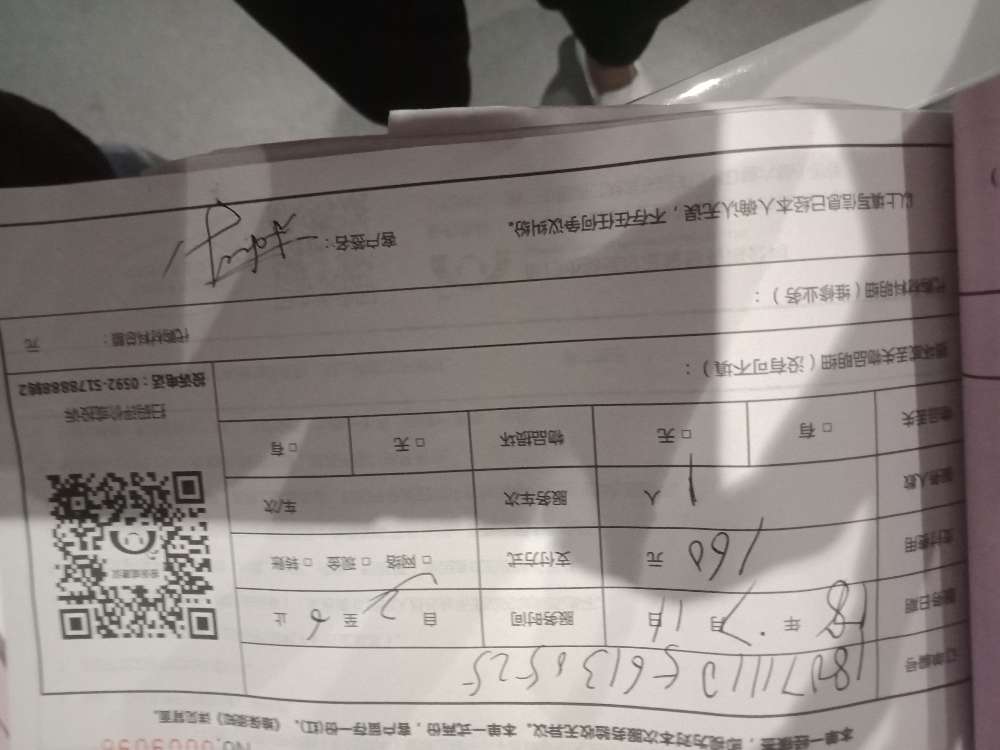 No.0009096
本单一经签收，即视为对本次服务验收无异议。本单一式两份，客户留存一份(红)。《维保须知》详见背面。
订单编号 180711105613 8525
服务日期 18 年 7 月 11 日 服务时间 自 2 至 6 止
支付费用 160 元 支付方式 □ 网络 □ 现金 □ 转账
服务人数 1 人 服务车次 车/次
物品丢失 □ 有 □ 无 物品损坏 □ 无 □ 有
扫码评价或投诉
投诉电话：0592-5178888转2
损坏或丢失物品明细（没有可不填）：
代购材料明细（维修业务）： 代购材料总额： 元
以上填写信息已经本人确认无误，不存在任何争议纠纷。 客户签名：